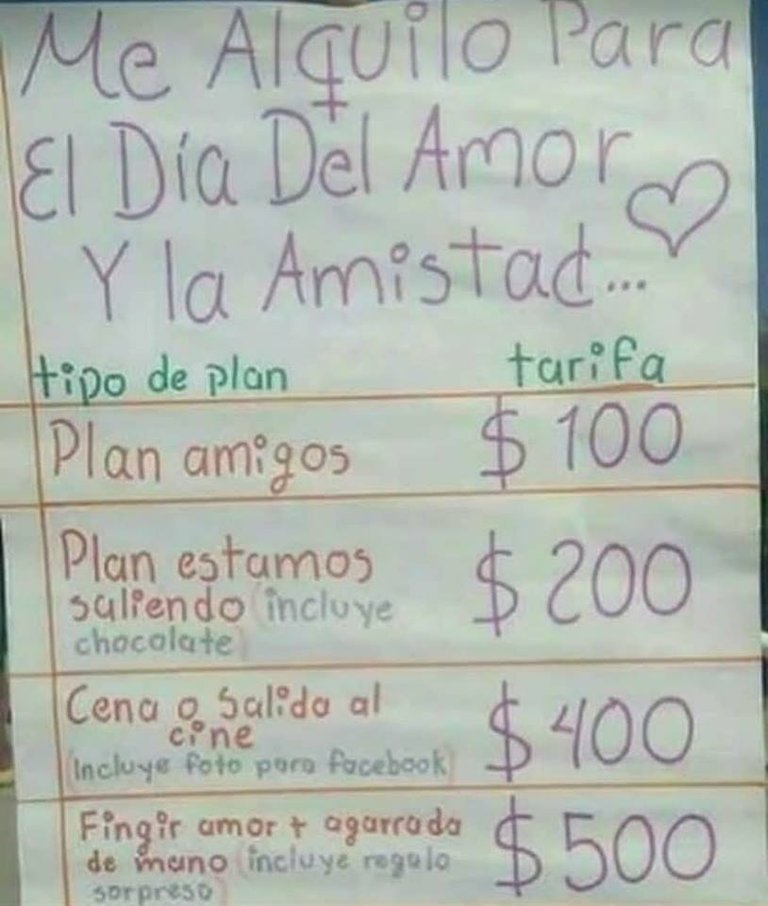 Me Alquilo Para
El Día Del Amor
Y la Amistad...
tipo de plan tarifa
Plan amigos $ 100
Plan estamos
saliendo (incluye
chocolate)
$ 200
Cena o Salida al
cine
(Incluye foto para facebook)
$ 400
Fingir amor + agarrada
de mano (incluye regalo
sorpresa)
$ 500